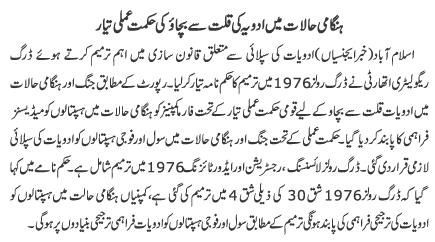 ہنگامی حالات میں ادویہ کی قلت سے بچاؤ کی حکمت عملی تیار
اسلام آباد (خبر ایجنسیاں) ادویات کی سپلائی سے متعلق قانون سازی میں اہم ترمیم کرتے ہوئے ڈرگ
ریگولیٹری اتھارٹی نے ڈرگ رولز 1976 میں ترمیم کا حکم نامہ تیار کر لیا۔ رپورٹ کے مطابق جنگ اور ہنگامی حالات
میں ادویات قلت سے بچاؤ کے لیے قومی حکمت عملی تیار کے تحت فارما کمپنیز کو ہنگامی حالات میں ہسپتالوں کو میڈیسنز
فراہمی کا پابند کر دیا گیا۔ حکمت عملی کے تحت جنگ اور ہنگامی حالات میں سول اور فوجی ہسپتالوں کو ادویات کی سپلائی
لازمی قرار دی گئی۔ ڈرگ رولز لائسنسنگ، رجسٹریشن اور ایڈورٹائزنگ 1976 میں ترمیم شامل ہے۔ حکم نامے میں کہا
گیا کہ ڈرگ رولز 1976 شق 30 کی ذیلی شق 4 میں ترمیم کی گئی ہے، کمپنیاں ہنگامی حالت میں ہسپتالوں کو
ادویات کی ترجیحی فراہمی کی پابند ہونگی ترمیم کے مطابق سول اور فوجی ہسپتالوں کو ادویات فراہمی ترجیحی بنیادوں پر ہوگی۔